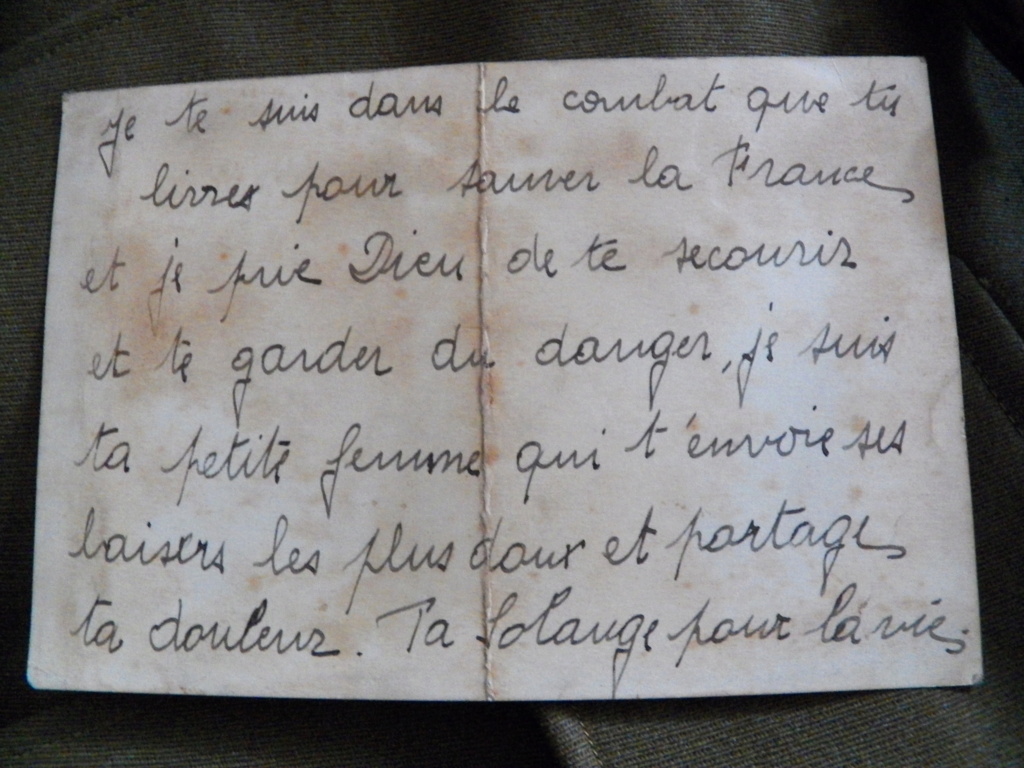 je te suis dans le combat que tu
livres pour sauver la France
et je prie Dieu de te secourir
et te garder du danger, je suis
ta petite femme qui t'envoie ses
baisers les plus doux et partage
ta douleur. Ta Solange pour la vie.